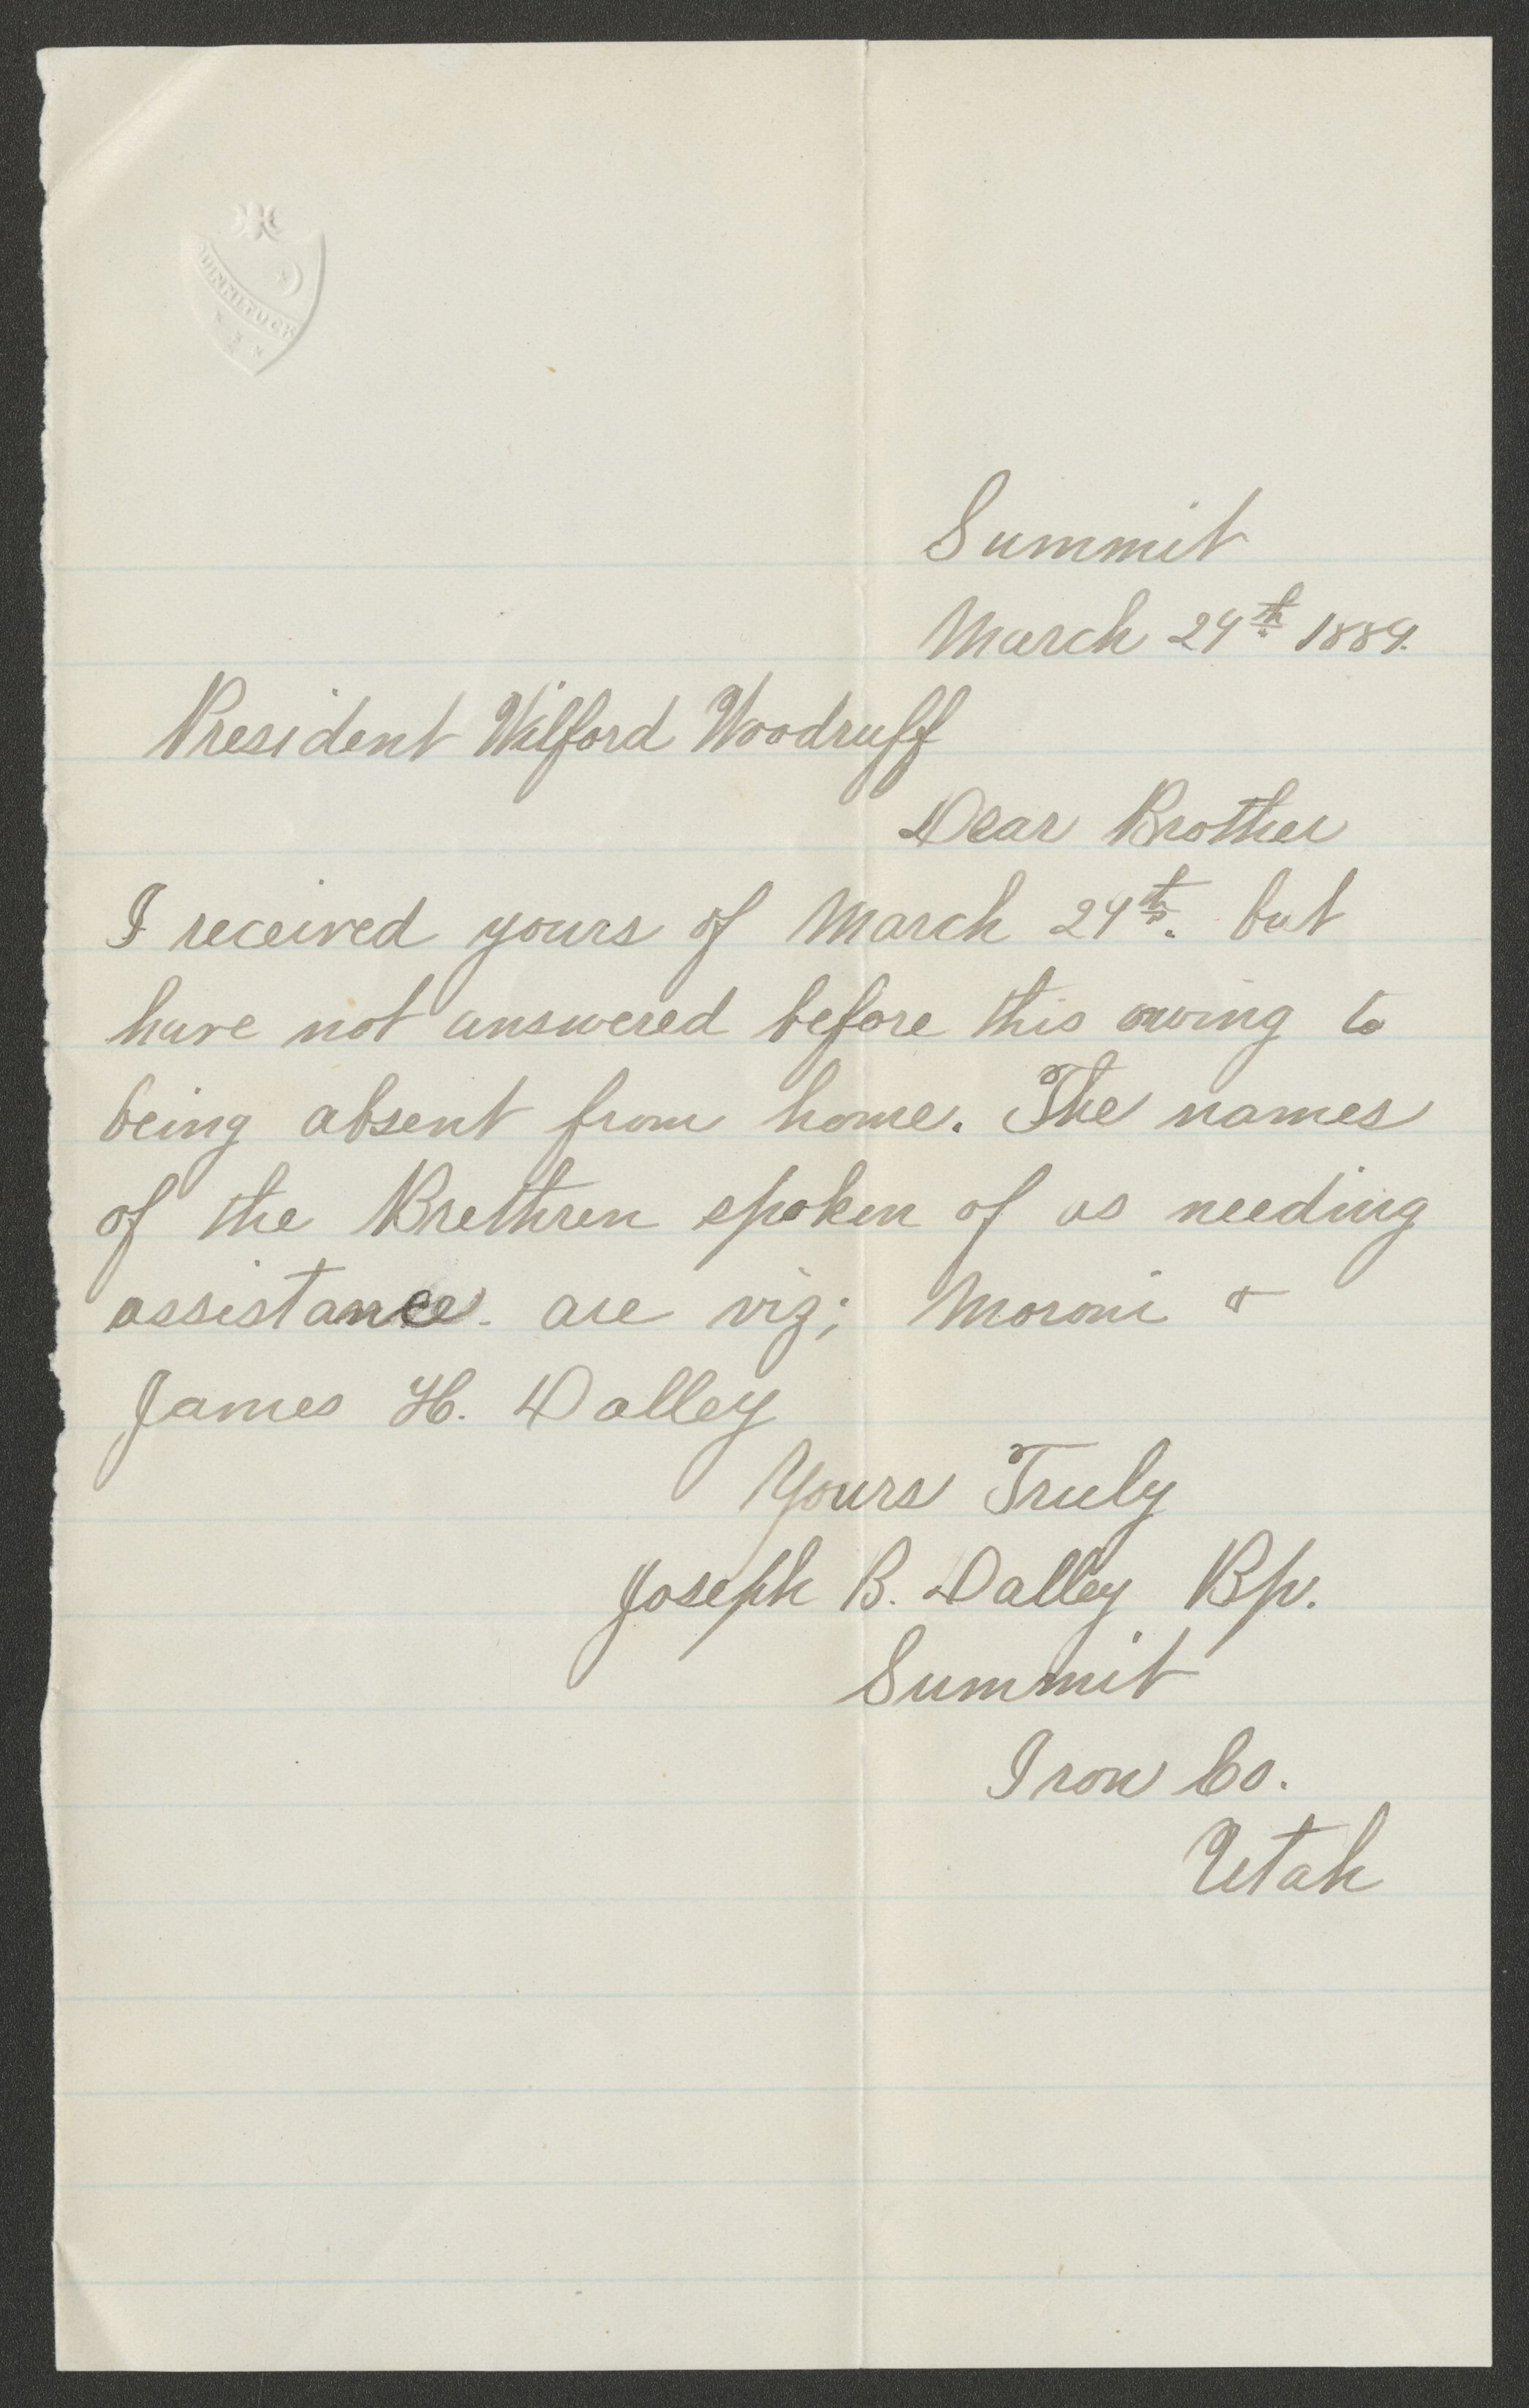 QUINNITUCK
Summit
March 29th 1889.
President Wilford Woodruff
Dear Brother
I received yours of March 24th. but
have not answered before this owing to
being absent from home. The names
of the Brethren spoken of as needing
assistance are viz; Moroni &
James H. Dalley
Yours Truly
Joseph B. Dalley Bp.
Summit
Iron Co.
Utah